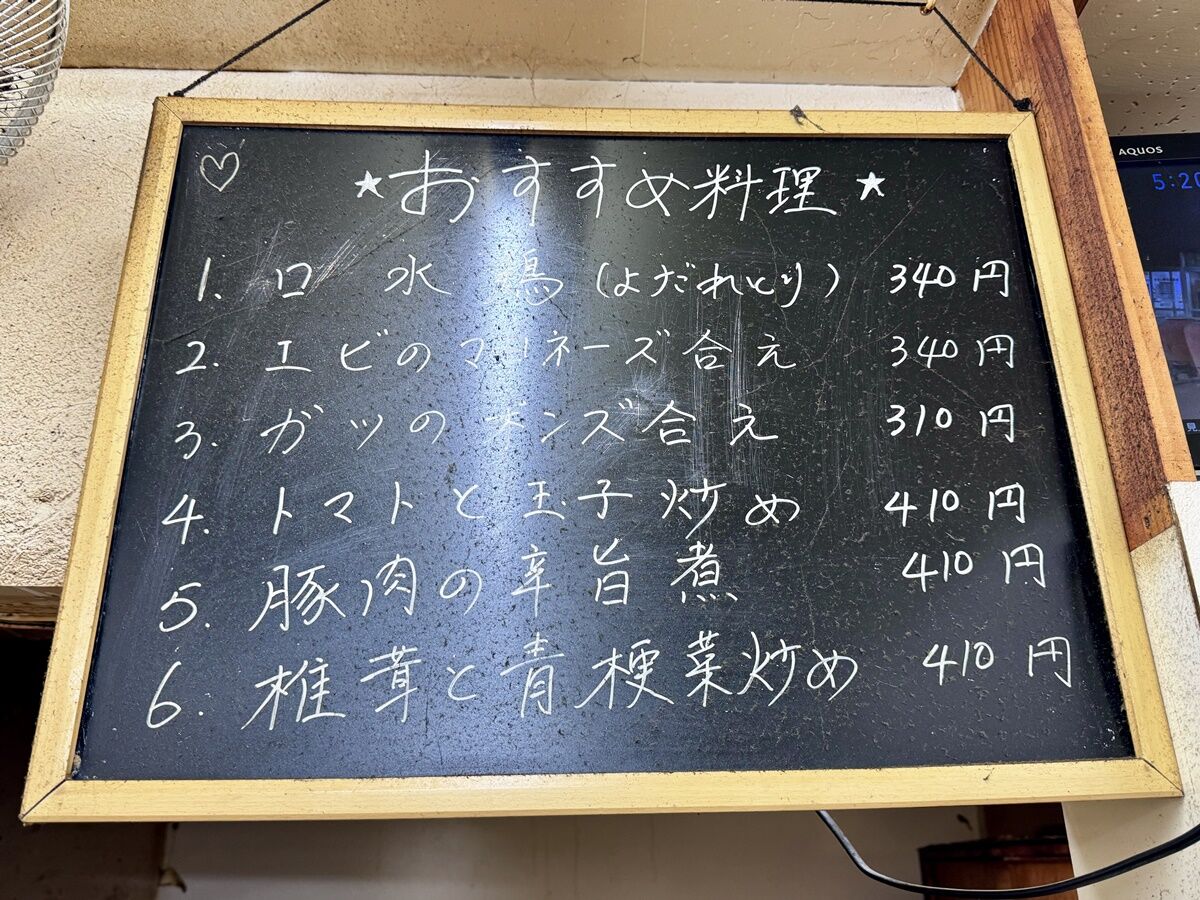 ★おすすめ料理★
1. 口水鶏(よだれとり) 340円
2. エビのマヨネーズ合え 340円
3. ガツのポンズ合え 310円
4. トマトと玉子炒め 410円
5. 豚肉の辛旨煮 410円
6. 椎茸と青梗菜炒め 410円
AQUOS
5:20
見